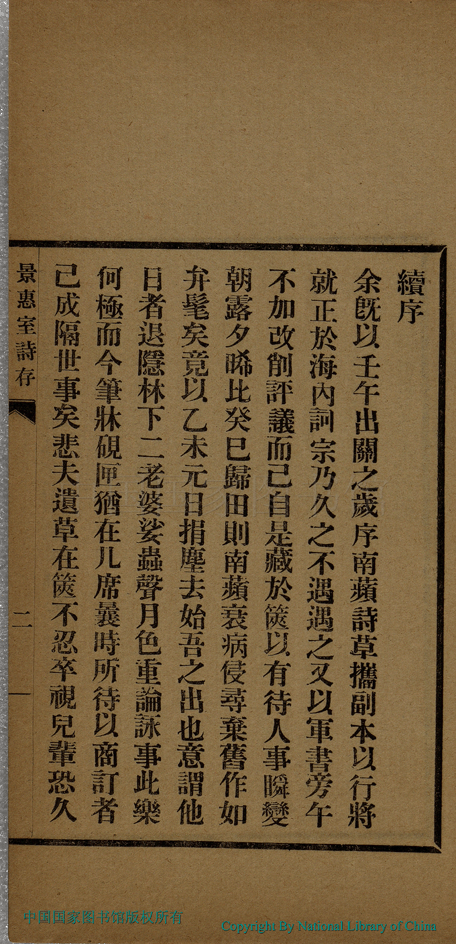 續序
余旣以壬午出關之歲序南蘋詩草攜副本以行將
就正於海內詞宗乃久之不遇遇之又以軍書旁午
不加改削評議而已自是藏於篋以有待人事瞬變
朝露夕晞比癸巳歸田則南蘋衰病侵尋棄舊作如
弁髦矣竟以乙未元日捐塵去始吾之出也意謂他
日者退隱林下二老婆娑蟲聲月色重論詠事此樂
何極而今筆牀硯匣猶在几席曩時所待以商訂者
已成隔世事矣悲夫遺草在篋不忍卒視兒輩恐久
景惠室詩存
二
中国国家图书馆版权所有
Copyright By National Library of China